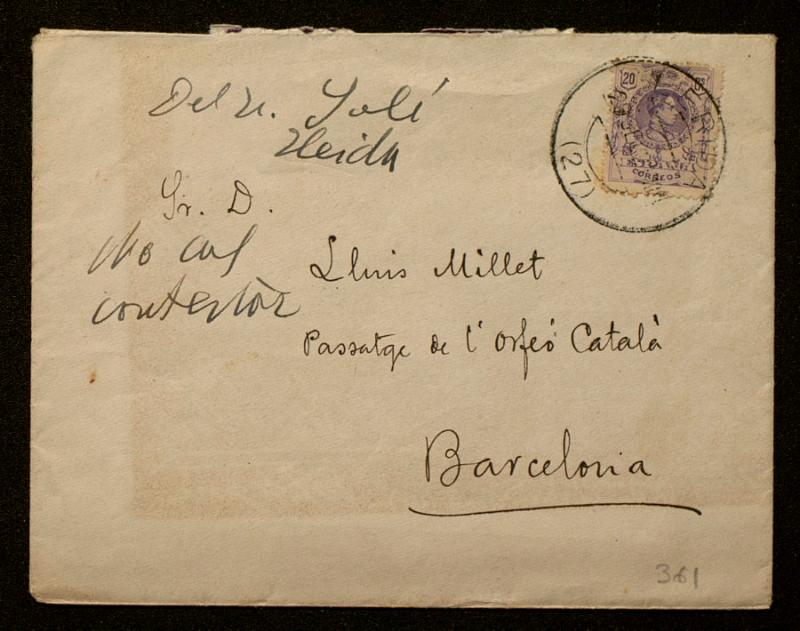 Del Sr. Solé
Lleida
Sr. D.
No cal
contestar
Lluis Millet
Passatge de l'Orfeó Català
Barcelona
20
CORREOS
LERIDA
(27)
361